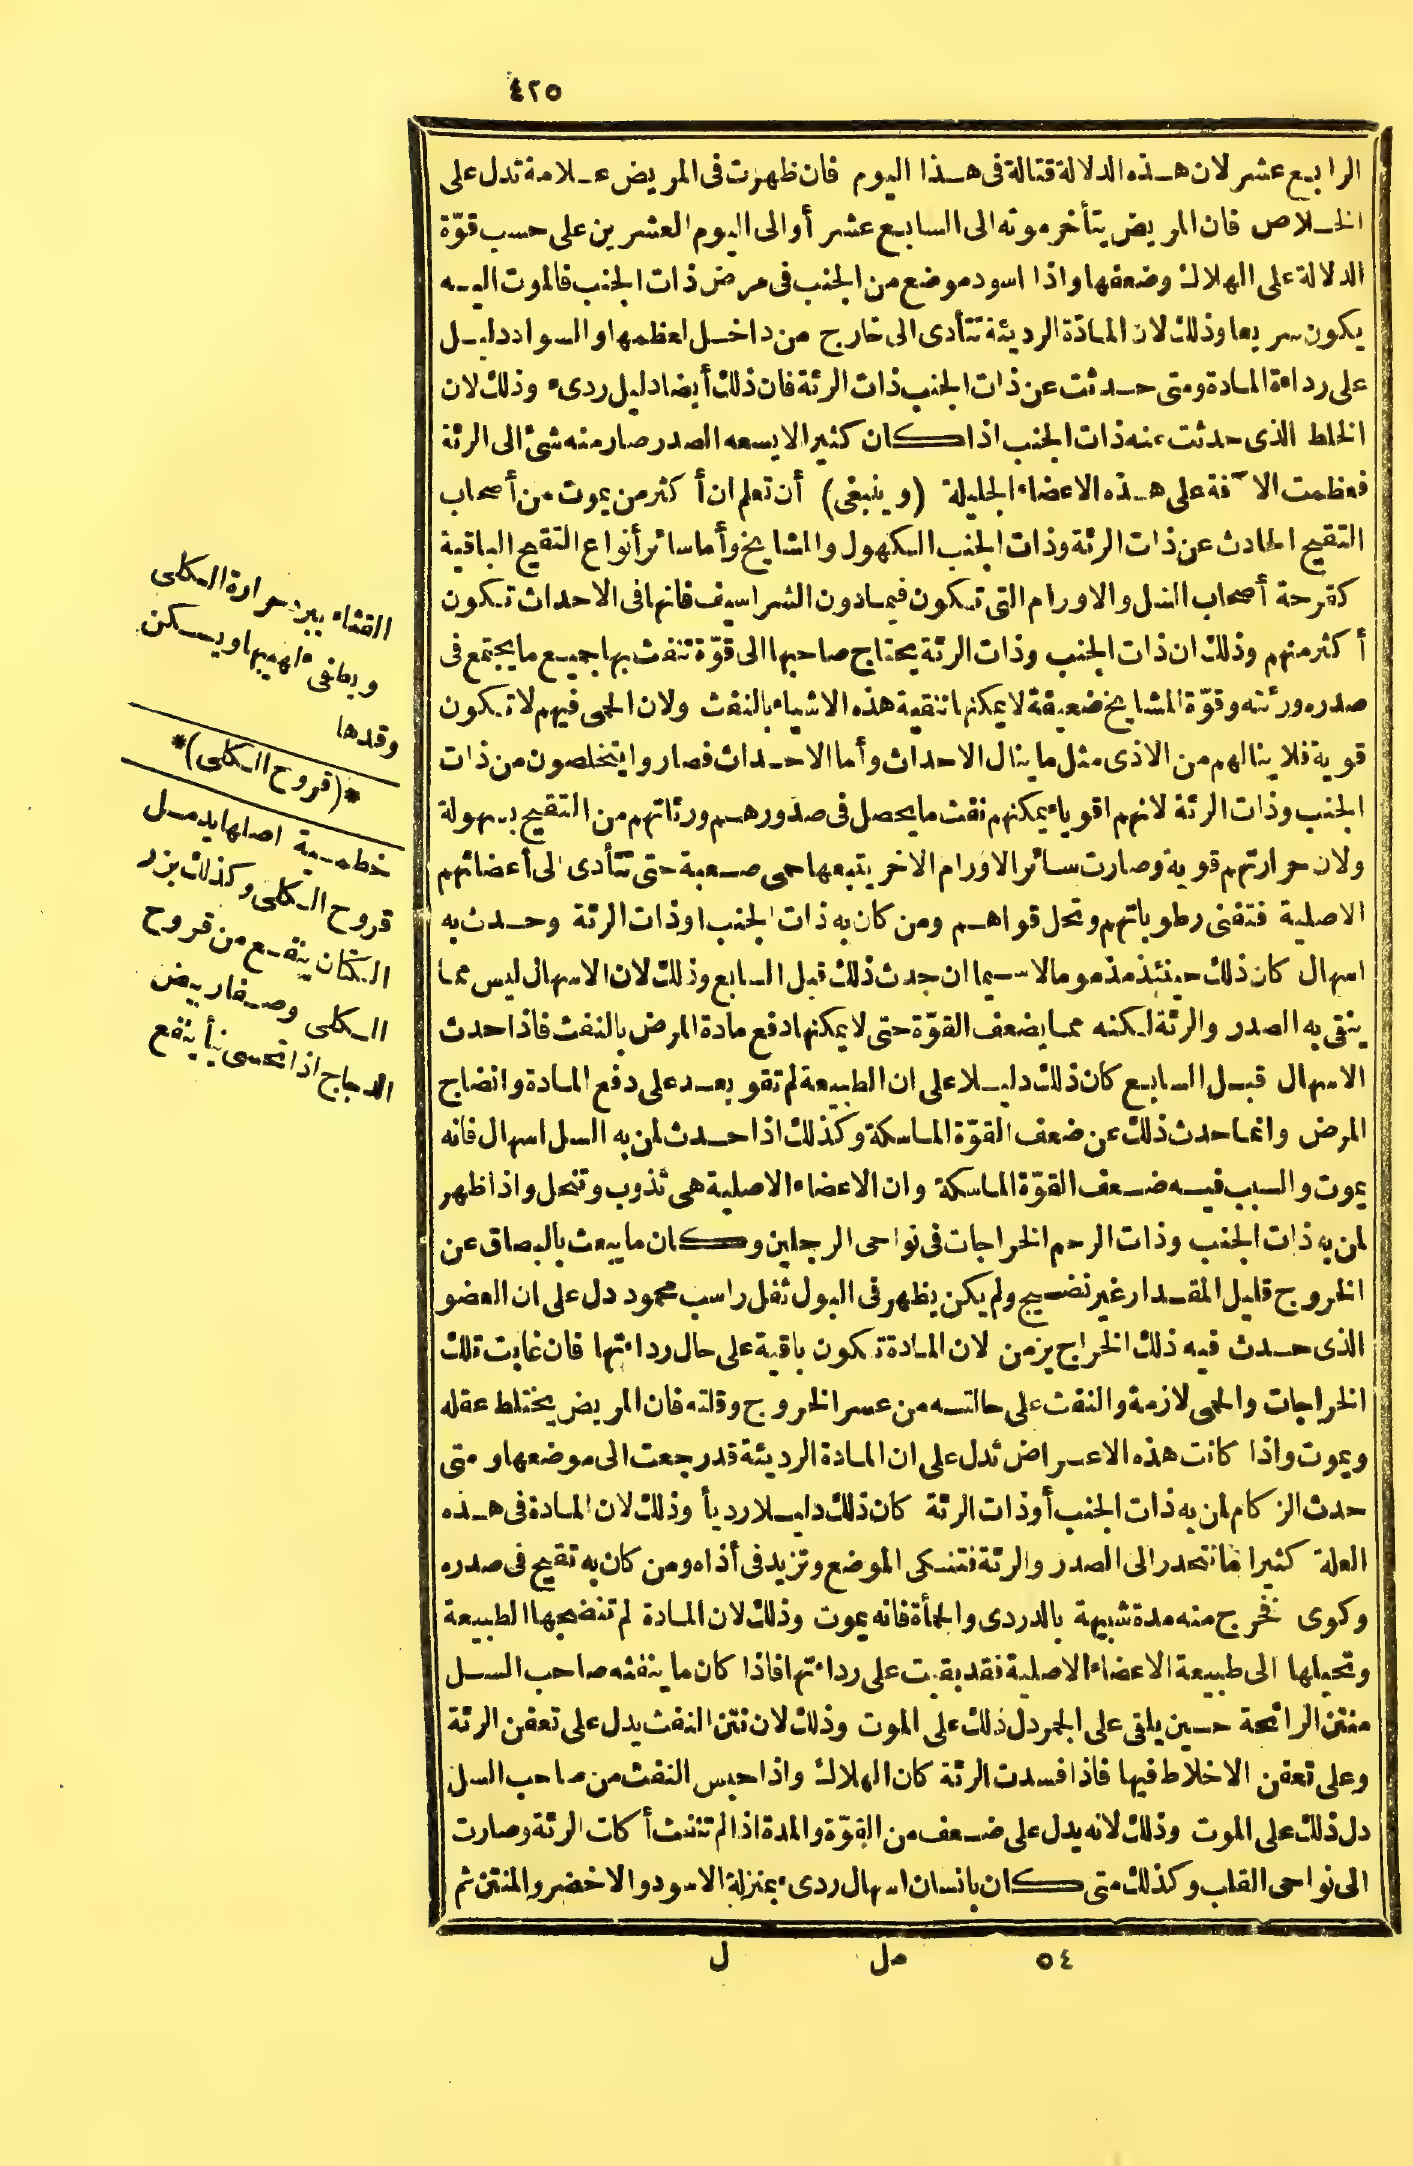 ٤٢٥
الرابع عشر لان هذه الدلالة قتالة فى هذا اليوم فان ظهرت فى المريض علامة تدل على
الخلاص فان المريض يتأخر موته الى السابع عشر أو الى اليوم العشرين على حسب قوّة
الدلالة على الهلاك وضعفها واذا اسود موضع من الجنب فى مرض ذات الجنب فالموت اليه
يكون سريعا وذلك لان المادّة الرديئة تتأدى الى خارج من داخل لعظمها والسواد دليل
على رداءة المادة ومتى حدثت عن ذات الجنب ذات الرئة فان ذلك أيضا دليل ردىء وذلك لان
الخلط الذى حدثت عنه ذات الجنب اذا كان كثيرا لا يسعه الصدر صار منه شئ الى الرئة
فعظمت الآفة على هذه الاعضاء الجليلة (وينبغى) أن تعلم ان أكثر من يموت من أصحاب
التقيح الحادث عن ذات الرئة وذات الجنب الكهول والمشايخ وأما سائر أنواع التقيح الباقية
كقرحة أصحاب السل والاورام التى تكون فيما دون الشراسيف فانها فى الاحداث تكون
أكثر منهم وذلك ان ذات الجنب وذات الرئة يحتاج صاحبها الى قوّة تنفث بها جميع ما يجتمع فى
صدره ورئته وقوّة المشايخ ضعيفة لا يمكنها تنقية هذه الاشياء بالنفث ولان الحمى فيهم لا تكون
قوية فلا ينالهم من الاذى مثل ما ينال الاحداث وأما الاحداث فصاروا يتخلصون من ذات
الجنب وذات الرئة لانهم اقوياء يمكنهم نفث ما يحصل فى صدورهم ورئاتهم من التقيح بسهولة
ولان حرارتهم قوية وصارت سائر الاورام الاخر يتبعها حمى صعبة حتى تتأدى الى أعضائهم
الاصلية فتفنى رطوباتهم وتحل قواهم ومن كان به ذات الجنب او ذات الرئة وحدث به
اسهال كان ذلك حينئذ مذموما لا سيما ان حدث ذلك قبل السابع وذلك لان الاسهال ليس مما
ينقى به الصدر والرئة لكنه مما يضعف القوّة حتى لا يمكنها دفع مادة المرض بالنفث فاذا حدث
الاسهال قبل السابع كان ذلك دليلا على ان الطبيعة لم تقو بعد على دفع المادة وانضاج
المرض وانما حدث ذلك عن ضعف القوّة الماسكة وكذلك اذا حدث لمن به السل اسهال فانه
يموت والسبب فيه ضعف القوّة الماسكة وان الاعضاء الاصلية هى تذوب وتنحل واذا ظهر
لمن به ذات الجنب وذات الرحم الخراجات فى نواحى الرجلين وكان ما يبعث بالبصاق عن
الخروج قليل المقدار غير نضيج ولم يكن يظهر فى البول ثفل راسب محمود دل على ان العضو
الذى حدث فيه ذلك الخراج يزمن لان المادة تكون باقية على حال رداءتها فان غابت تلك
الخراجات والحمى لازمة والنفث على حالته من عسر الخروج وقلته فان المريض يختلط عقله
ويموت واذا كانت هذه الاعراض تدل على ان المادة الرديئة قد رجعت الى موضعها ومتى
حدث الزكام لمن به ذات الجنب أو ذات الرئة كان ذلك دليلا رديأ وذلك لان المادة فى هذه
العلة كثيرا ما تنحدر الى الصدر والرئة فتنكى الموضع وتزيد فى أذاه ومن كان به تقيح فى صدره
وكوى فخرج منه مدة شبيهة بالدردى والحمأة فانه يموت وذلك لان المادة لم تنضجها الطبيعة
وتحيلها الى طبيعة الاعضاء الاصلية فقد بقيت على رداءتها فاذا كان ما ينفثه صاحب السل
منتن الرائحة حين يلقى على الجمر دل ذلك على الموت وذلك لان نتن النفث يدل على تعفن الرئة
وعلى تعفن الاخلاط فيها فاذا فسدت الرئة كان الهلاك واذا حبس النفث من صاحب السل
دل ذلك على الموت وذلك لانه يدل على ضعف من القوّة والمدة اذا لم تنفث أكات الرئة وصارت
الى نواحى القلب وكذلك متى كان بانسان اسهال ردىء بمنزلة الاسود والاخضر والمنتن ثم
٥٤ مل ل
القثاء يبرد حرارة الكلى
ويطفىء لهيبها ويسكن
وقدها
*(قروح الكلى)*
خطمية اصلها يدمل
قروح الكلى وكذلك بزر
الكتان ينفع من قروح
الكلى وصفار بيض
الدجاج اذا تحسى نيأ ينفع